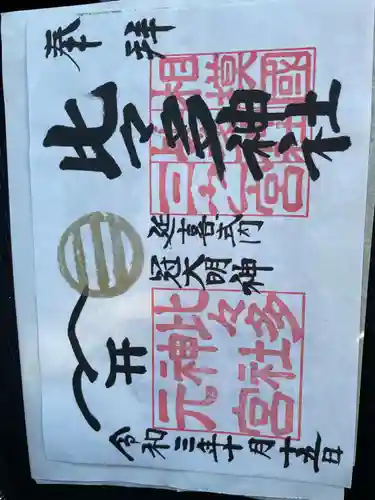 奉拝
比々多神社
相模國
三之宮
延喜式内
冠大明神
比々多
神社
元宮
令和三年十月十五日